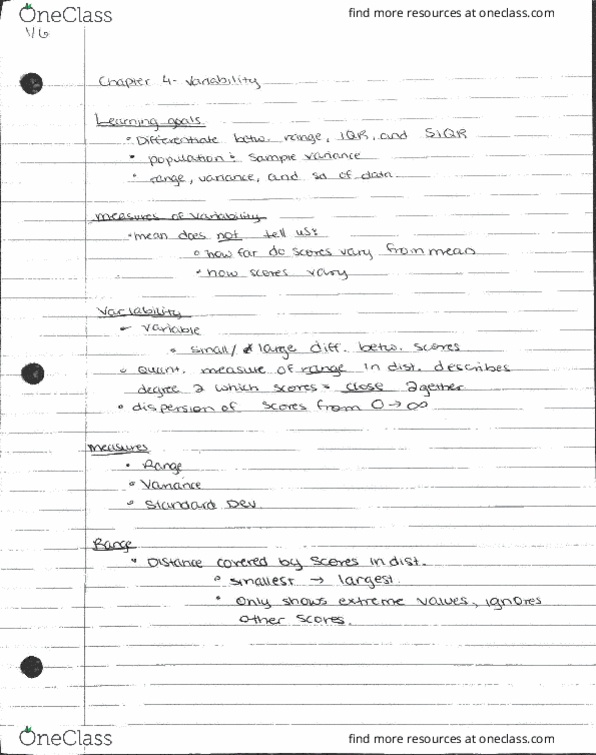 OneClass
find more resources at oneclass.com
1/6
Chapter 4- Variability
Learning goals
• Differentiate betw. range, IQR, and SIQR
• population & sample variance
• range, variance, and SD of data
measures of variability
• mean does not tell us:
• how far do scores vary from mean
• how scores vary
Variability
- variable
• small/ large diff. betw. scores
• Quant. measure of range in dist. describes
degree 2 which scores = close 2gether
• dispersion of scores from 0 → ∞
measures
• Range
• Variance
• Standard Dev.
Range
• Distance covered by scores in dist.
• smallest → largest.
• Only shows extreme values, ignores
other scores.
OneClass
find more resources at oneclass.com